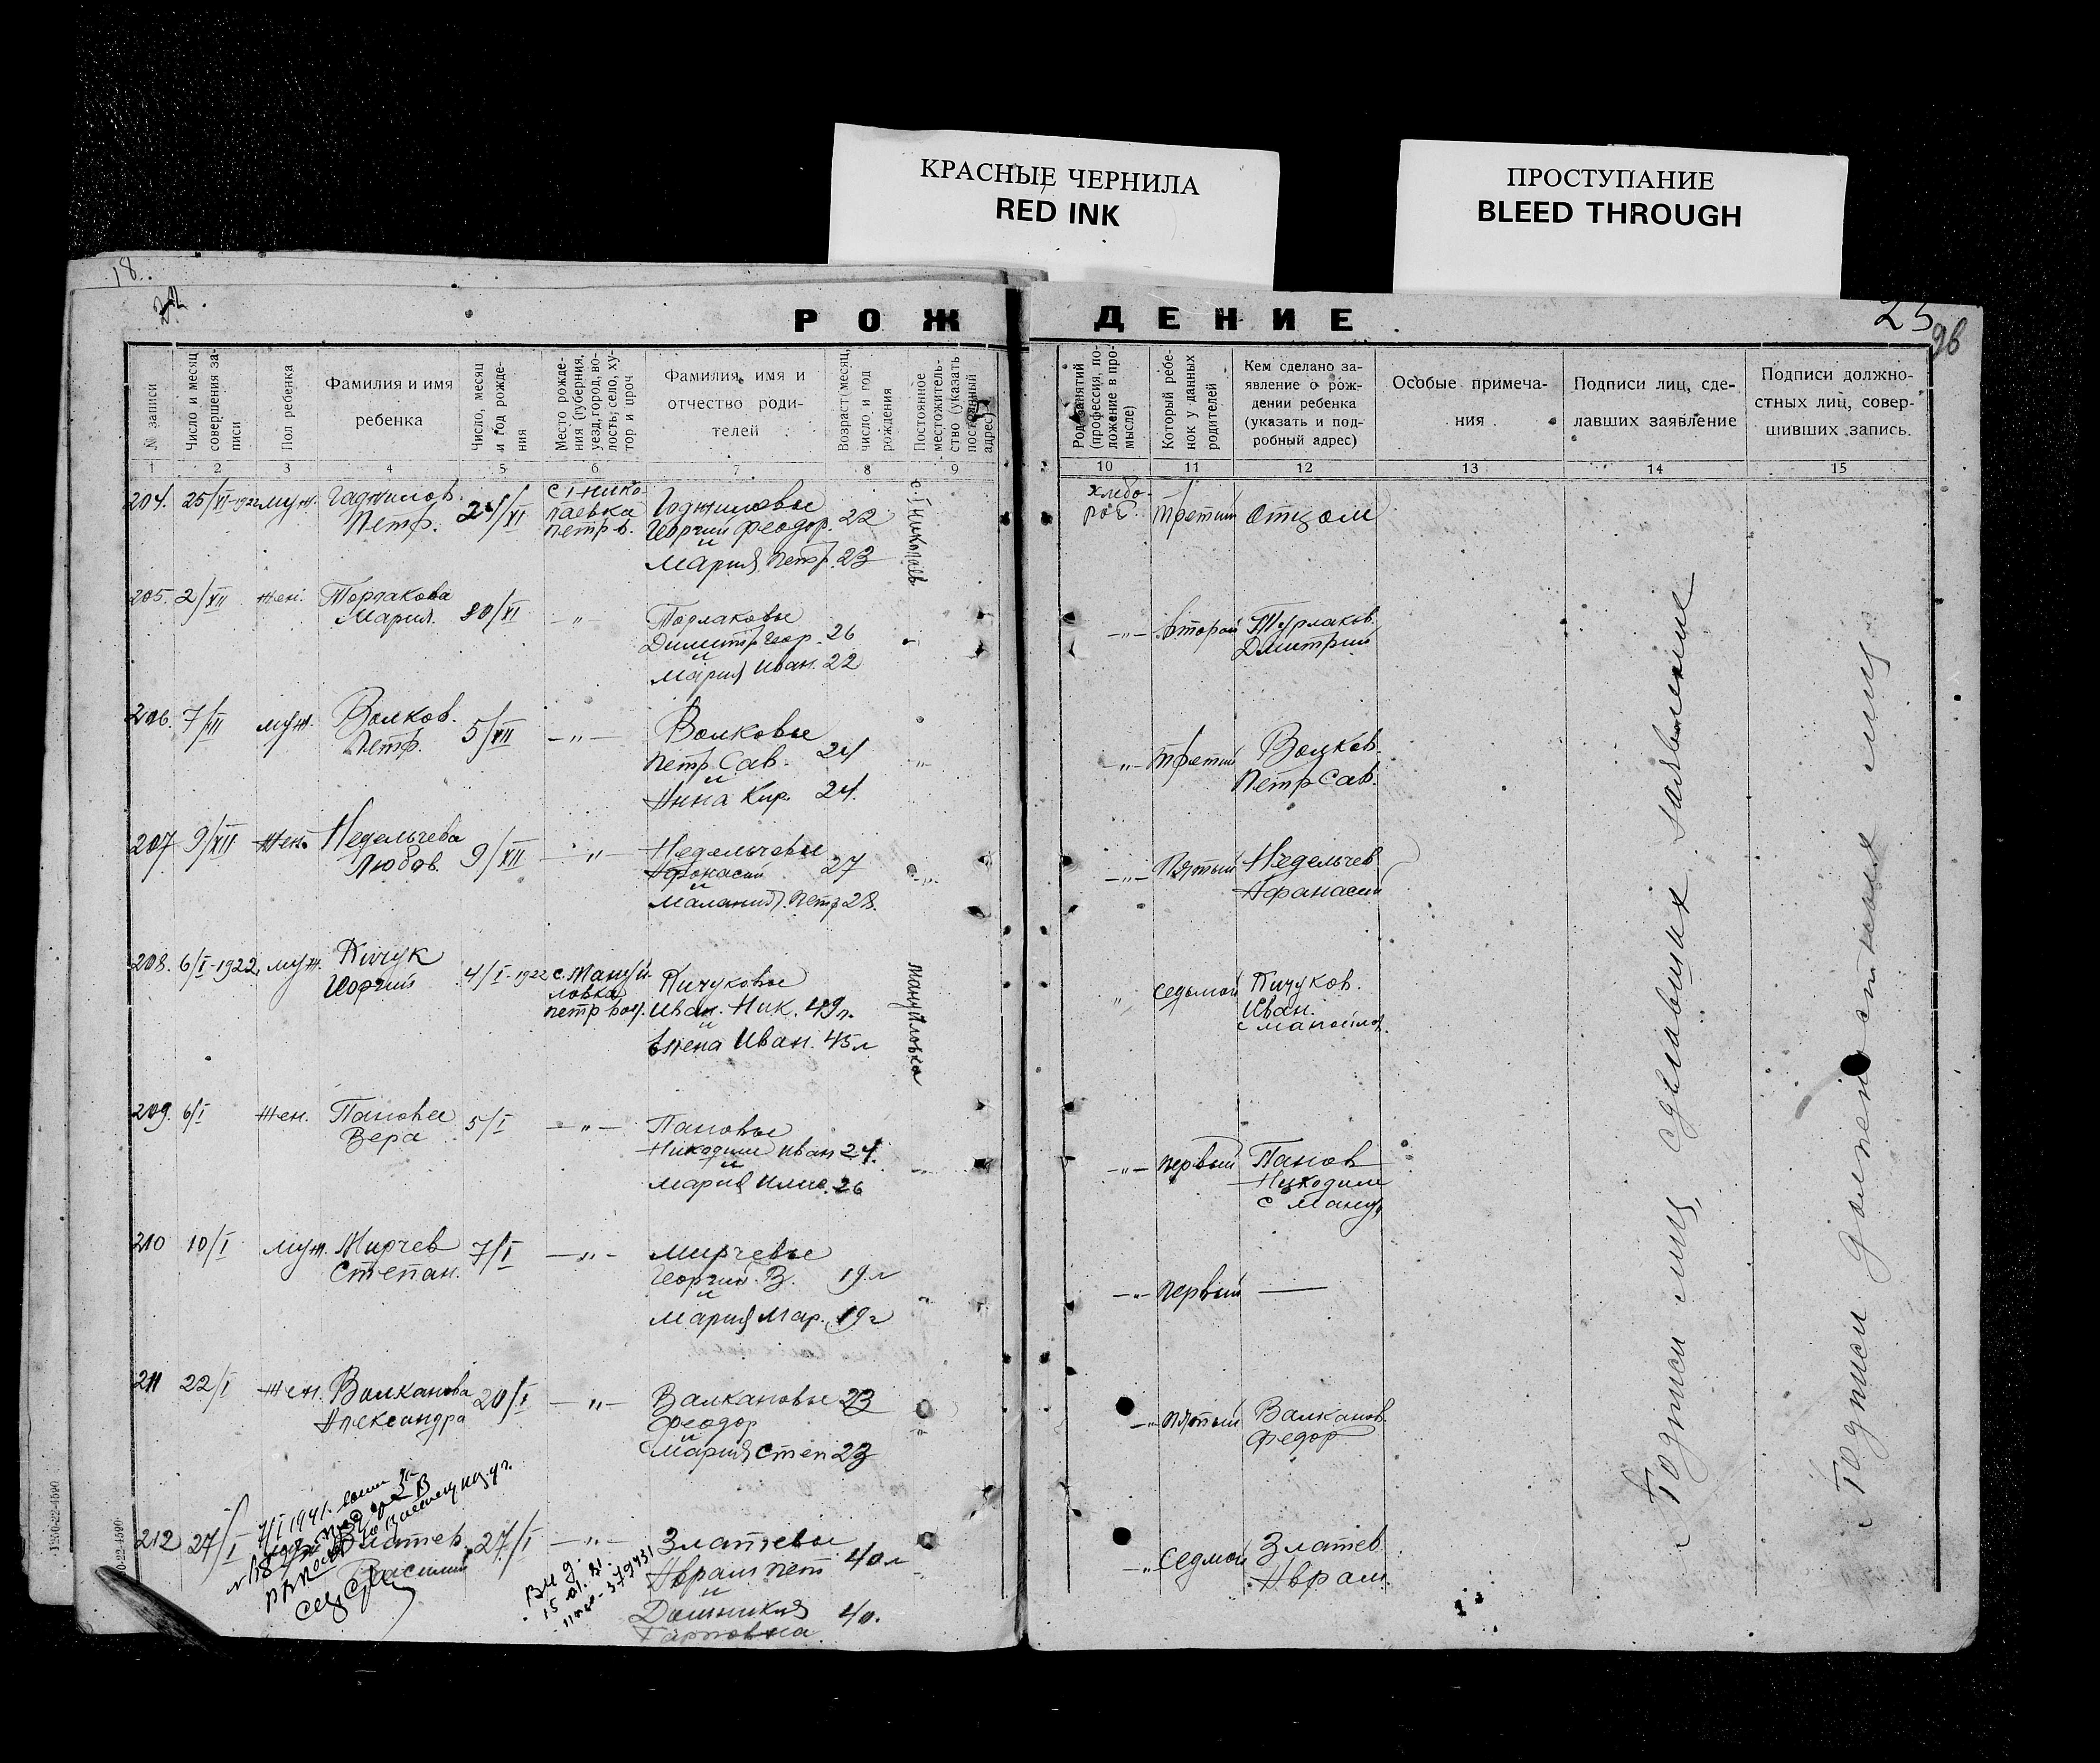 КРАСНЫЕ ЧЕРНИЛА
RED INK
ПРОСТУПАНИЕ
BLEED THROUGH
18.
25
26
РОЖДЕНИЕ
№ записи
Число и месяц совершения записи
Пол ребенка
Фамилия и имя
ребенка
Число, месяц и год рождения
Место рождения (губерния, уезд, город, волость, село, хутор и проч
Фамилия, имя и
отчество роди-
телей
Возраст (месяц, число и год рождения
Постоянное местожительство (указать постоянный адрес)
Род занятий (профессия, положение в промысле)
Который ребенок у данных родителей
Кем сделано за-
явление о рож-
дении ребенка
(указать и под-
робный адрес)
Особые примеча-
ния
Подписи лиц, сде-
лавших заявление
Подписи должно-
стных лиц, совер-
шивших запись.
1 2 3 4 5 6 7 8 9 10 11 12 13 14 15
204. 25/XI-1922 муж.
Петр.
24/XI
с. Нико-
лаевка
Петр в.
Георгий Феодор. 22
и
Мария Петр. 23
хлебо-
роб.
третий
отцом
205. 2/XII жен.
Мария.
30/XI
—"—
Димитр Геор. 26
и
Мария Иван. 22
—"—
второй
Турлаков
Дмитрий
206. 7/XII муж.
Волков.
Петр.
5/XII
—"—
Волковы
Петр Сав. 24
и
Анна Кир. 24.
—"—
третий
Волков.
Петр Сав.
207 9/XII жен.
Недельчева
Любов.
9/XII
—"—
Недельчевы
Афонасий 27
и
Мелания Петр 28.
—"—
пятый
Недельчев
Афанасий
208. 6/I-1922 муж.
Кичук
Георгий
4/I-1922
с. Мануй-
ловка
Петр вол.
Кичуковы
Иван. Ник. 49 л.
и
Елена Иван. 45 л
Мануйловка
"
седьмой
Кичуков.
Иван.
209. 6/I жен.
Панова
Вера
5/I
—"—
Пановы
Никодим Иван 24.
и
Мария Илис. 26
—"—
первый
Панов
Никодим
с Ману
210 10/I муж.
Мирчев
Степан.
7/I
—"—
Мирчевы
Георгий. В. 19 л
и
Мария Мар. 19 л
—"—
первый
—
211 22/I жен.
Валканова
Александра
20/I
—"—
Валкановы 23
Феодор
и
Мария Степ 23
—"—
пятый
Валканов.
Федор
212 27/I
Златев.
Василий
27/I
—"—
Златевы
Аврам Пет 40 л
и
40.
—"—
седмой
Златев
Аврам.
Подписи лиц, сделавших заявление
Подписи должностных лиц